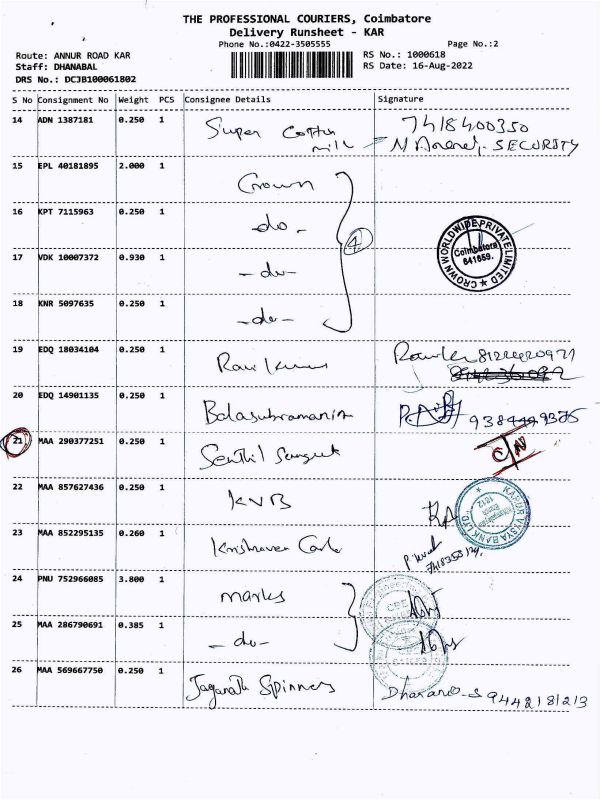 THE PROFESSIONAL COURIERS, Coimbatore
Delivery Runsheet - KAR
Phone No.:0422-3505555 Page No.:2
Route: ANNUR ROAD KAR RS No.: 1000618
Staff: DHANABAL RS Date: 16-Aug-2022
DRS No.: DCJB100061802
S No Consignment No Weight PCS Consignee Details Signature
14 ADN 1387181 0.250 1 Super Cotton 7418400350
mill SECURITY
15 EPL 40181895 2.000 1 Crown
16 KPT 7115963 0.250 1 -do-
4
CROWN WORLDWIDE PRIVATE LIMITED
Coimbatore
641659.
17 VDK 10007372 0.930 1 -do-
18 KNR 5097635 0.250 1 -do-
19 EDQ 18034104 0.250 1 Ravi Kumar
20 EDQ 14901135 0.250 1 Balasubramanian
21 MAA 290377251 0.250 1 Senthil
22 MAA 857627436 0.250 1 KVB
KARUR VYSYA BANK LTD
23 MAA 852295135 0.260 1
24 PNU 752966085 3.800 1 marks
25 MAA 286790691 0.385 1 -do-
26 MAA 569667750 0.250 1 Jaganath Spinners 9442181213